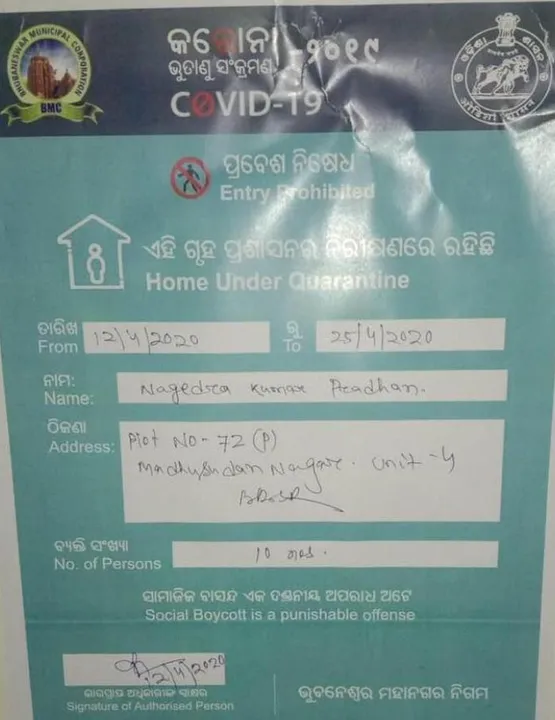 BHUBANESWAR MUNICIPAL CORPORATION
BMC
କରୋନା
ଭୂତାଣୁ ସଂକ୍ରମଣ -୨୦୧୯
COVID-19
ପ୍ରବେଶ ନିଷେଧ
Entry Prohibited
ଏହି ଗୃହ ପ୍ରଶାସନର ନିରୀକ୍ଷଣରେ ରହିଛି
Home Under Quarantine
ତାରିଖ
From 12/4/2020
ରୁ
To 25/4/2020
ନାମ:
Name: Nagedra Kumar Pradhan.
ଠିକଣା
Address: Plot NO - 72 (P)
Madhusudan Nagar. Unit - 4
BBSR
ବ୍ୟକ୍ତି ସଂଖ୍ୟା
No. of Persons 10 nos.
ସାମାଜିକ ବାସନ୍ଦ ଏକ ଦଣ୍ଡନୀୟ ଅପରାଧ ଅଟେ
Social Boycott is a punishable offense
12/4/2020
ଭାରପ୍ରାପ୍ତ ଅଧିକାରୀଙ୍କ ସ୍ୱାକ୍ଷର
Signature of Authorised Person
ଭୁବନେଶ୍ୱର ମହାନଗର ନିଗମ